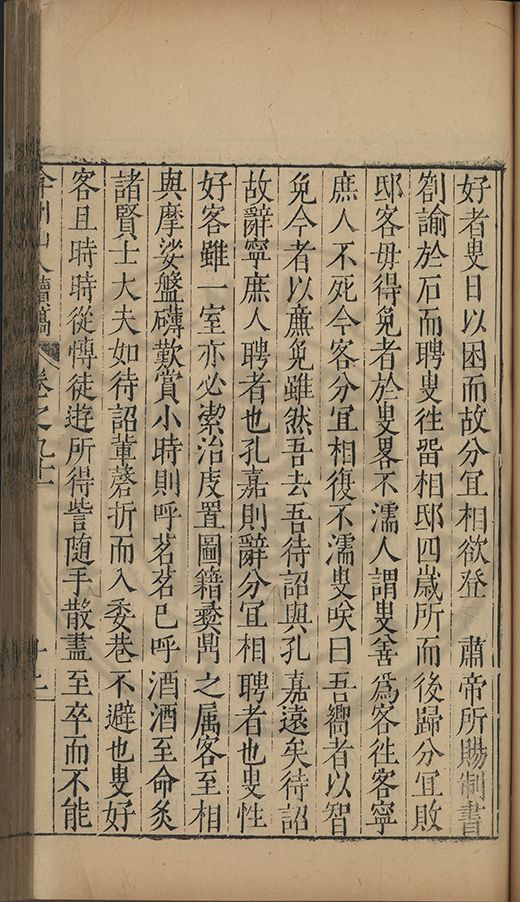 好者叟日以困而故分宜相欲登　肅帝所賜制書
劄諭於石而聘叟徃畱相邸四歲所而後歸分宜敗
邸客毋得免者於叟畧不濡人謂叟善爲客徃客寧
庶人不死今客分宜相復不濡叟唉曰吾嚮者以智
免今者以廉免雖然吾去吾待詔與孔嘉遠矣待詔
故辭寧庶人聘者也孔嘉則辭分宜相聘者也叟性
好客雖一室亦必潔治庋置圖籍彝鼎之属客至相
與摩娑盤礴歎賞小時則呼茗茗已呼酒酒至命炙
諸賢士大夫如待詔董磬折而入委巷不避也叟好
客且時時從愽徒遊所得訾随手散盡至卒而不能
弇州山人續稿　卷之九十